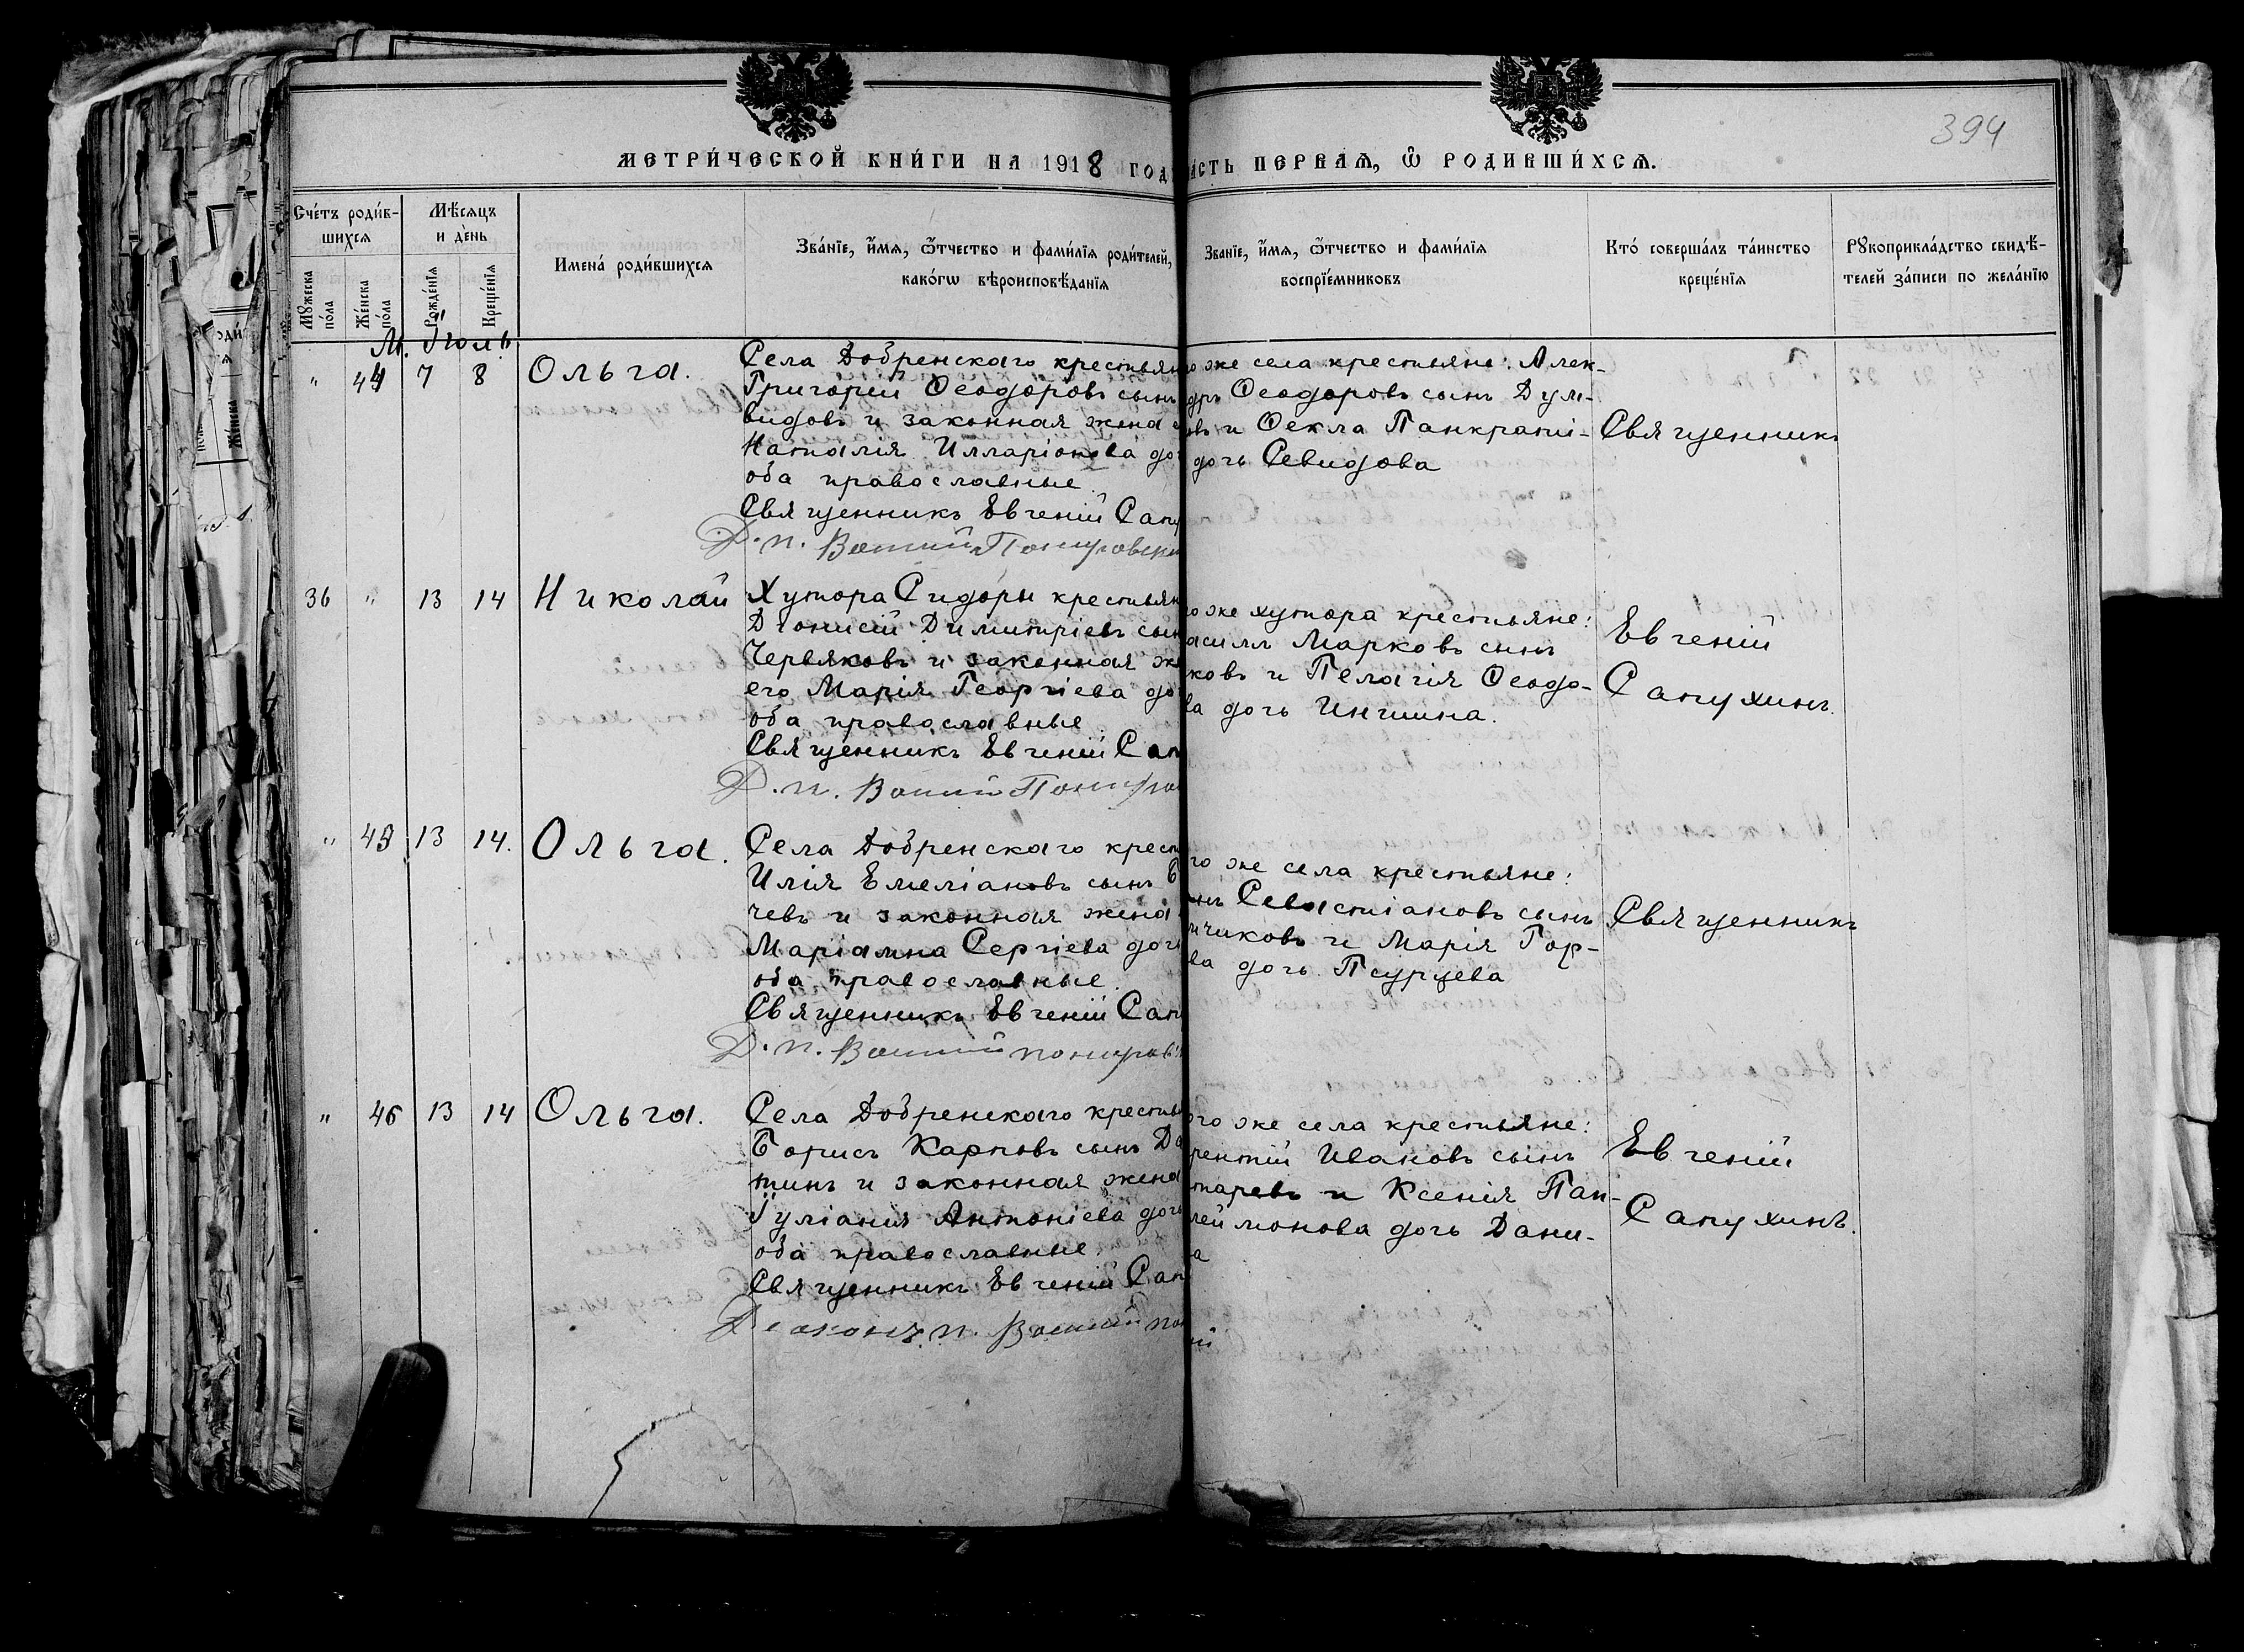 394
МЕТРИ́ЧЕСКОЙ КНИ́ГИ НА 1918 ГОД
АСТЬ ПЕРВАѦ, Ѡ РОДИВШИ́ХСѦ.
Сче́тъ роди́в-
шихсѧ
Мꙋжеска по́ла
Же́нска по́ла
Мѣ́сѧцъ
и де́нь
Рожде́нїѧ
Креще́нїѧ
Имена́ роди́вшихсѧ
Зва́нїе, и҆́мѧ, ѻ҆́тчество и фами́лїѧ роди́телей,
како́гѡ вѣроисповѣ́данїѧ
Зва́нїе, и҆́мѧ, ѻ҆́тчество и фами́лїѧ
воспрїе́мниковъ
Кто́ соверша́лъ та́инство
креще́нїѧ
Рꙋкоприкла́дство свидѣ́-
телей за́писи по жела́нїю
М. Іюль.
" 44 7 8 Ольга.
Села Добренскаго крестьян
Григорій Ѳеодоровъ сынъ
видовъ и законная жена
Наталія Илларіонова доч
оба православные.
Священникъ Евгеній Сапу
Д. п.
о же села крестьяне: Алек-
дръ Ѳеодоровъ сынъ Дум-
овъ и Ѳекла Панкраті-
дочь Севидова
Священникъ
36 " 13 14 Николай
Хутора Сидоры крестьян
Діонисій Димитріевъ сын
Червяковъ и законная же
его Марія Георгіева до
оба православные
Священникъ Евгеній Сап
Д. п.
о же хутора крестьяне:
асилій Марковъ сынъ
ковъ и Пелагія Ѳеодо-
ва дочь Иншина.
Евгеній
Сапухинъ.
" 45 13 14. Ольга.
Села Добренскаго крест
Илія Емеліановъ сынъ
чевъ и законная жена
Маріамна Сергіева доч
оба православные.
Священникъ Евгеній Сап
Д. п.
го же села крестьяне:
Севастіановъ сынъ
чиковъ и Марія Гор-
ва дочь Псурцева
Священникъ
" 46 13 14 Ольга.
Села Добренскаго крестья
Борисъ Карповъ сынъ Да
тинъ и законная жена
Іуліанія Антоніева дочь
оба православные.
Священникъ Евгеній Сап
Діаконъ п.
ого же села крестьяне:
рентій Ивановъ сынъ
таревъ и Ксенія Пан-
леймонова дочь Дани-
а
ий
Евгеній
Сапухинъ.